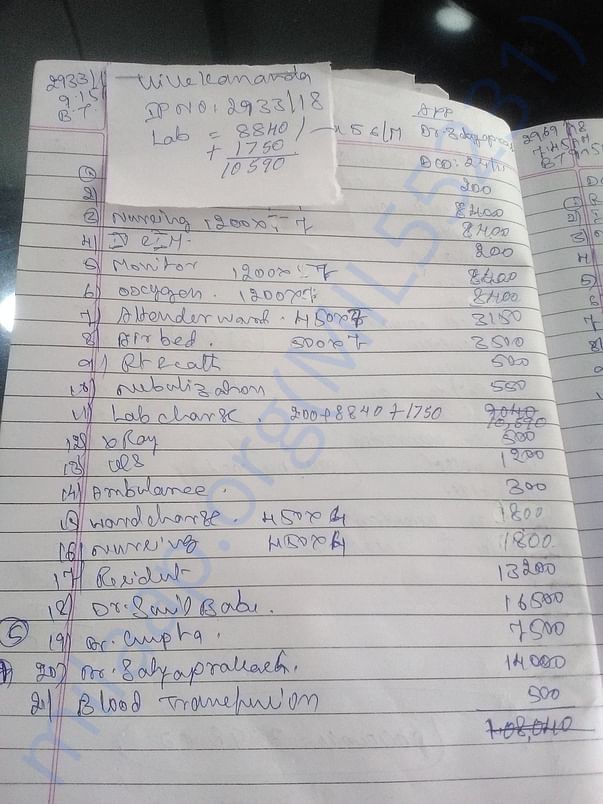 2933/
9:15
B.T.
Vivekananda
IP NO: 2933/18
Lab = 8840/
+ 1750
10590
56/M
App
Dr. Satyaprakash
2969/18
7:45 PM
1)
200
2)
8400
3) Nursing 1200x7 8400
4) 200
5) Monitor 1200x7 8400
6) oxygen. 1200x7 8400
7) Attender ward. 450x7 3150
8) Air bed. 500x7 3500
9) 500
10) nebulization 550
11) Lab charge. 200+8840+1750 9040
10,690
12) x Ray 500
13) 1200
14) Ambulance. 300
15) ward charge. 450x4 1800
16) nursing 450x4 1800
17) Resident 13200
18) Dr. Sunil Babu. 16500
5
19) Dr. Gupta. 7500
20) Dr. Satyaprakash. 14000
21) Blood Transfusion 500
1,08,040
milaap.org(MIL55231)